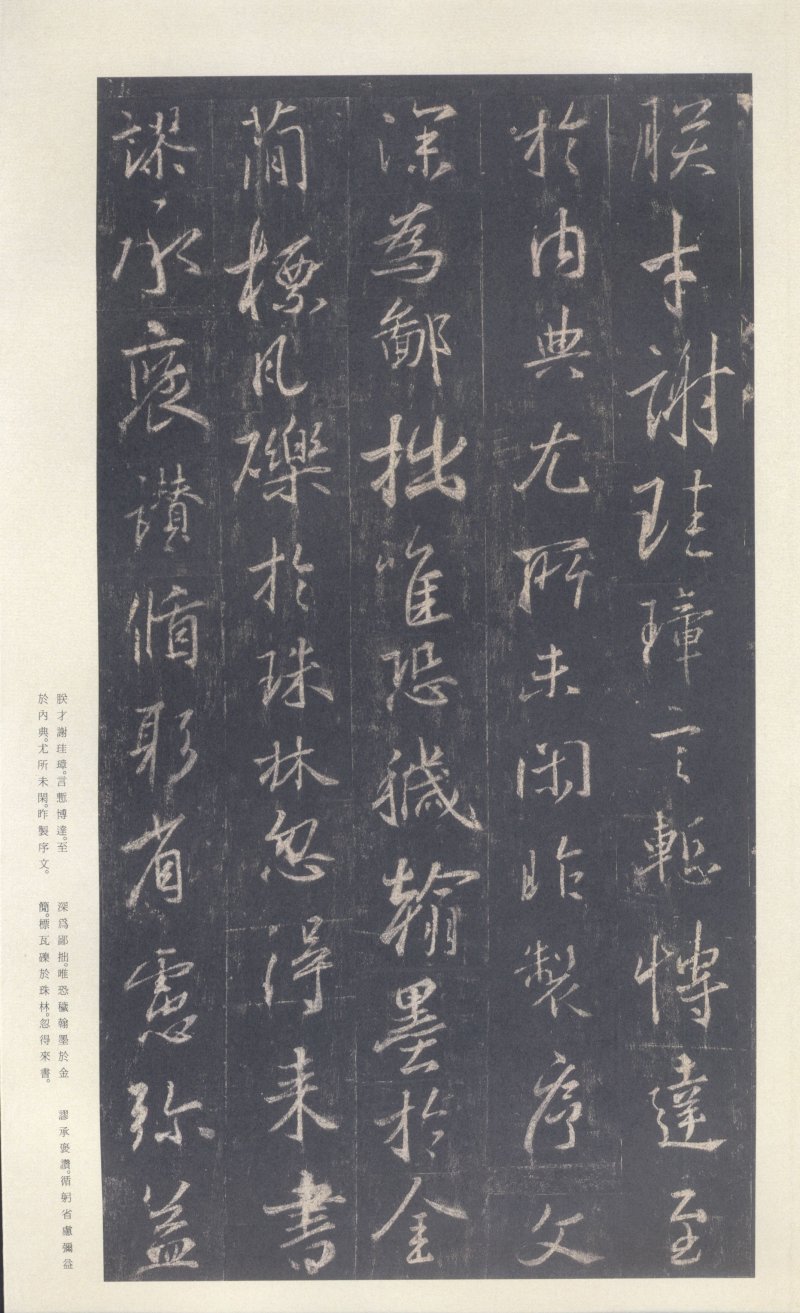 朕才謝珪璋言慙博達至
於內典尤所未閑昨製序文
深為鄙拙唯恐穢翰墨於金
簡標瓦礫於珠林忽得来書
謬承褒讚循躬省慮弥益
朕才謝珪璋。言慙博達。至
於內典。尤所未閑。昨製序文。
深爲鄙拙。唯恐穢翰墨於金
簡。標瓦礫於珠林。忽得來書。
謬承褒讚。循躬省慮彌益